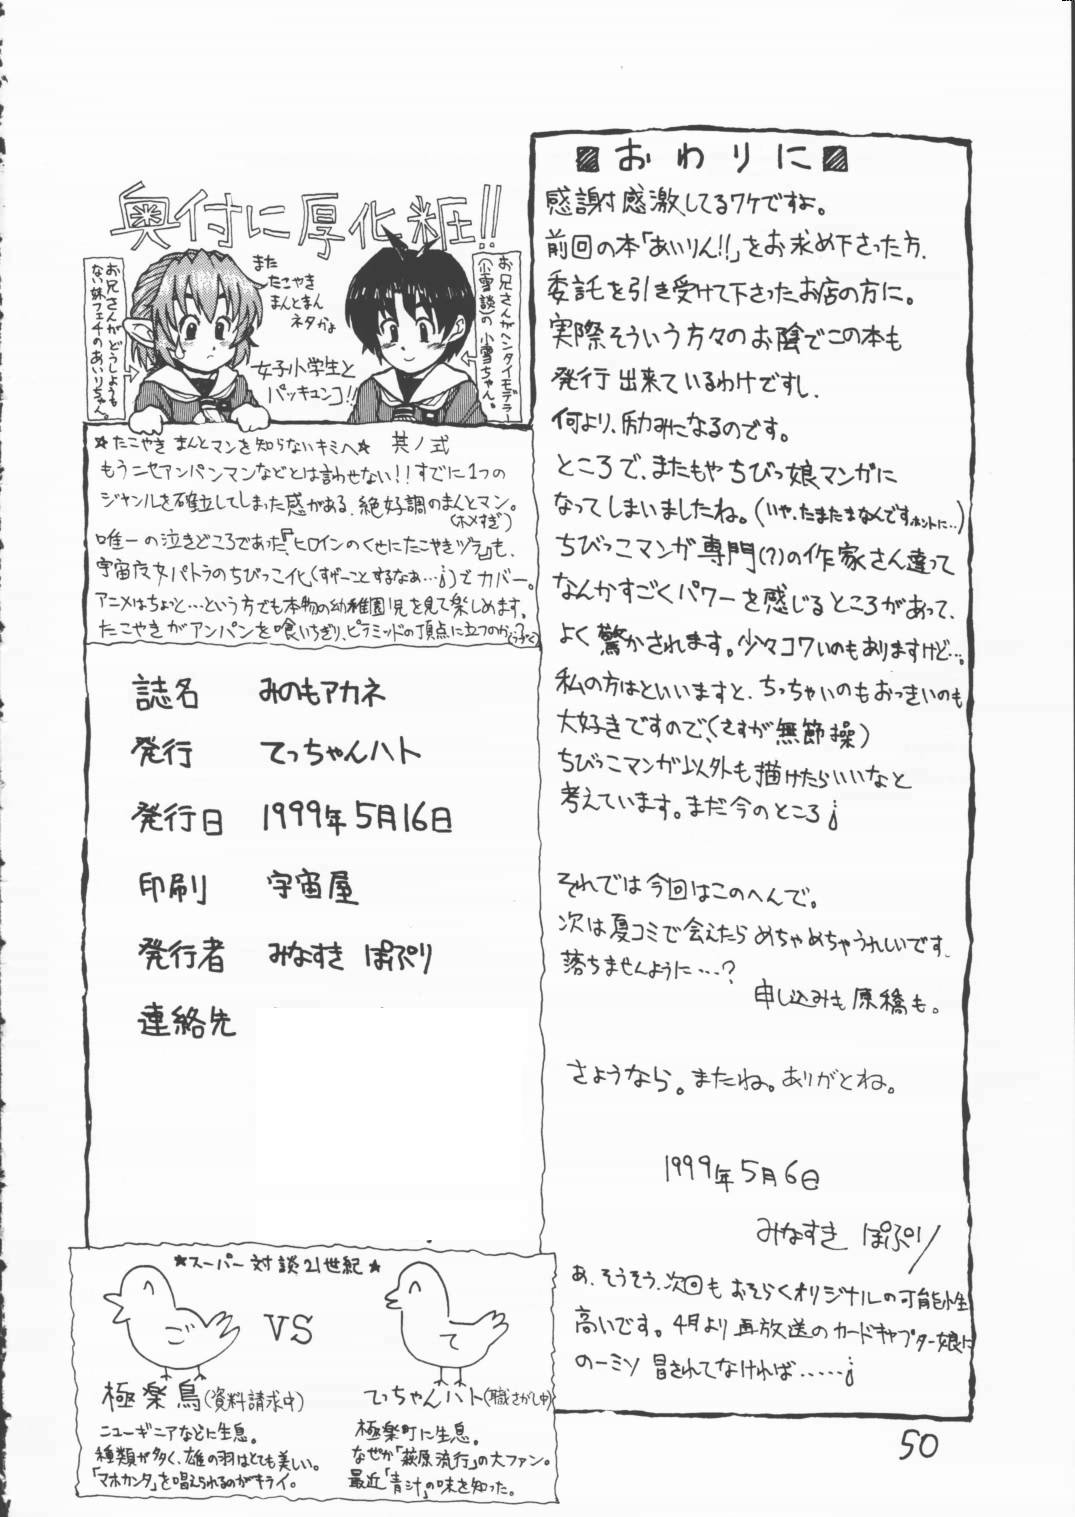 ■おわりに■
感謝感激してるワケですよ。
前回の本「あいりん!!」をお求め下さった方、
委託を引き受けて下さったお店の方に。
実際そういう方々のお陰でこの本も
発行出来ているわけですし、
何より、励みになるのです。
ところで、またもやちびっ娘マンガに
なってしまいましたね。(いや、たまたまなんですホントに…)
ちびっこマンガ専門(?)の作家さん達って
なんかすごくパワーを感じるところがあって、
よく驚かされます。少々コワいのもありますけど…。
私の方はといいますと、ちっちゃいのもおっきいのも
大好きですので、(さすが無節操)
ちびっこマンガ以外も描けたらいいなと
考えています。まだ今のところ;
それでは今回はこのへんで。
次は夏コミで会えたらめちゃめちゃうれしいです。
落ちませんように…?
申し込みも原稿も。
さようなら。またね。ありがとね。
1999年5月6日
みなすき ぽぷり
あ、そうそう、次回もおそらくオリジナルの可能性
高いです。4月より再放送のカードキャプター娘に
のーミソ冒されてなければ……;
50
奥付に厚化粧!!
お兄さんがどうしようも
ない妹フェチのあいりちゃん。
また
たこやき
まんとまん
ネタかよ
お兄さんがヘンタイモデラー
(小雪談)の小雪ちゃん。
女子小学生と
バッキュンコ!!
☆たこやきまんとマンを知らないキミへ☆ 其ノ弐
もうニセアンパンマンなどとは言わせない!!すでに1つの
ジャンルを確立してしまった感がある、絶好調のまんとマン。
(ホメすぎ)
唯一の泣きどころであった『ヒロインのくせにたこやきヅラ』も、
宇宙度女パトラのちびっこ化(すげーことするなぁ…;)でカバー。
アニメはちょっと…という方でも本物の幼稚園児を見て楽しめます。
たこやきがアンパンを喰いちぎり、ピラミッドの頂点に立つのか?
誌名 みのもアカネ
発行 てっちゃんハト
発行日 1999年5月16日
印刷 宇宙屋
発行者 みなすき ぽぷり
連絡先
★スーパー対談21世紀★
ご
VS
て
極楽鳥(資料請求中)
ニューギニアなどに生息。
種類が多く、雄の羽はとても美しい。
「マホカンタ」を唱えられるのがキライ。
てっちゃんハト(職さがし中)
極楽町に生息。
なぜか「萩原流行」の大ファン。
最近「青汁」の味を知った。